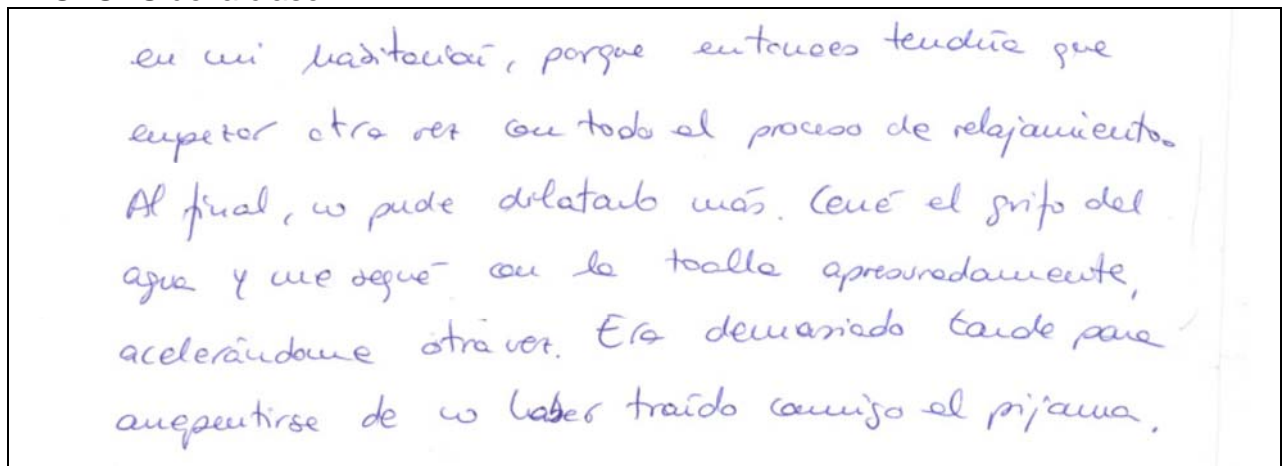 en mi habitación, porque entonces tendría que
empezar otra vez con todo el proceso de relajamiento.
Al final, no pude dilatarlo más. Cerré el grifo del
agua y me sequé con la toalla apresuradamente,
acelerándome otra vez. Era demasiado tarde para
arrepentirse de no haber traído conmigo el pijama.